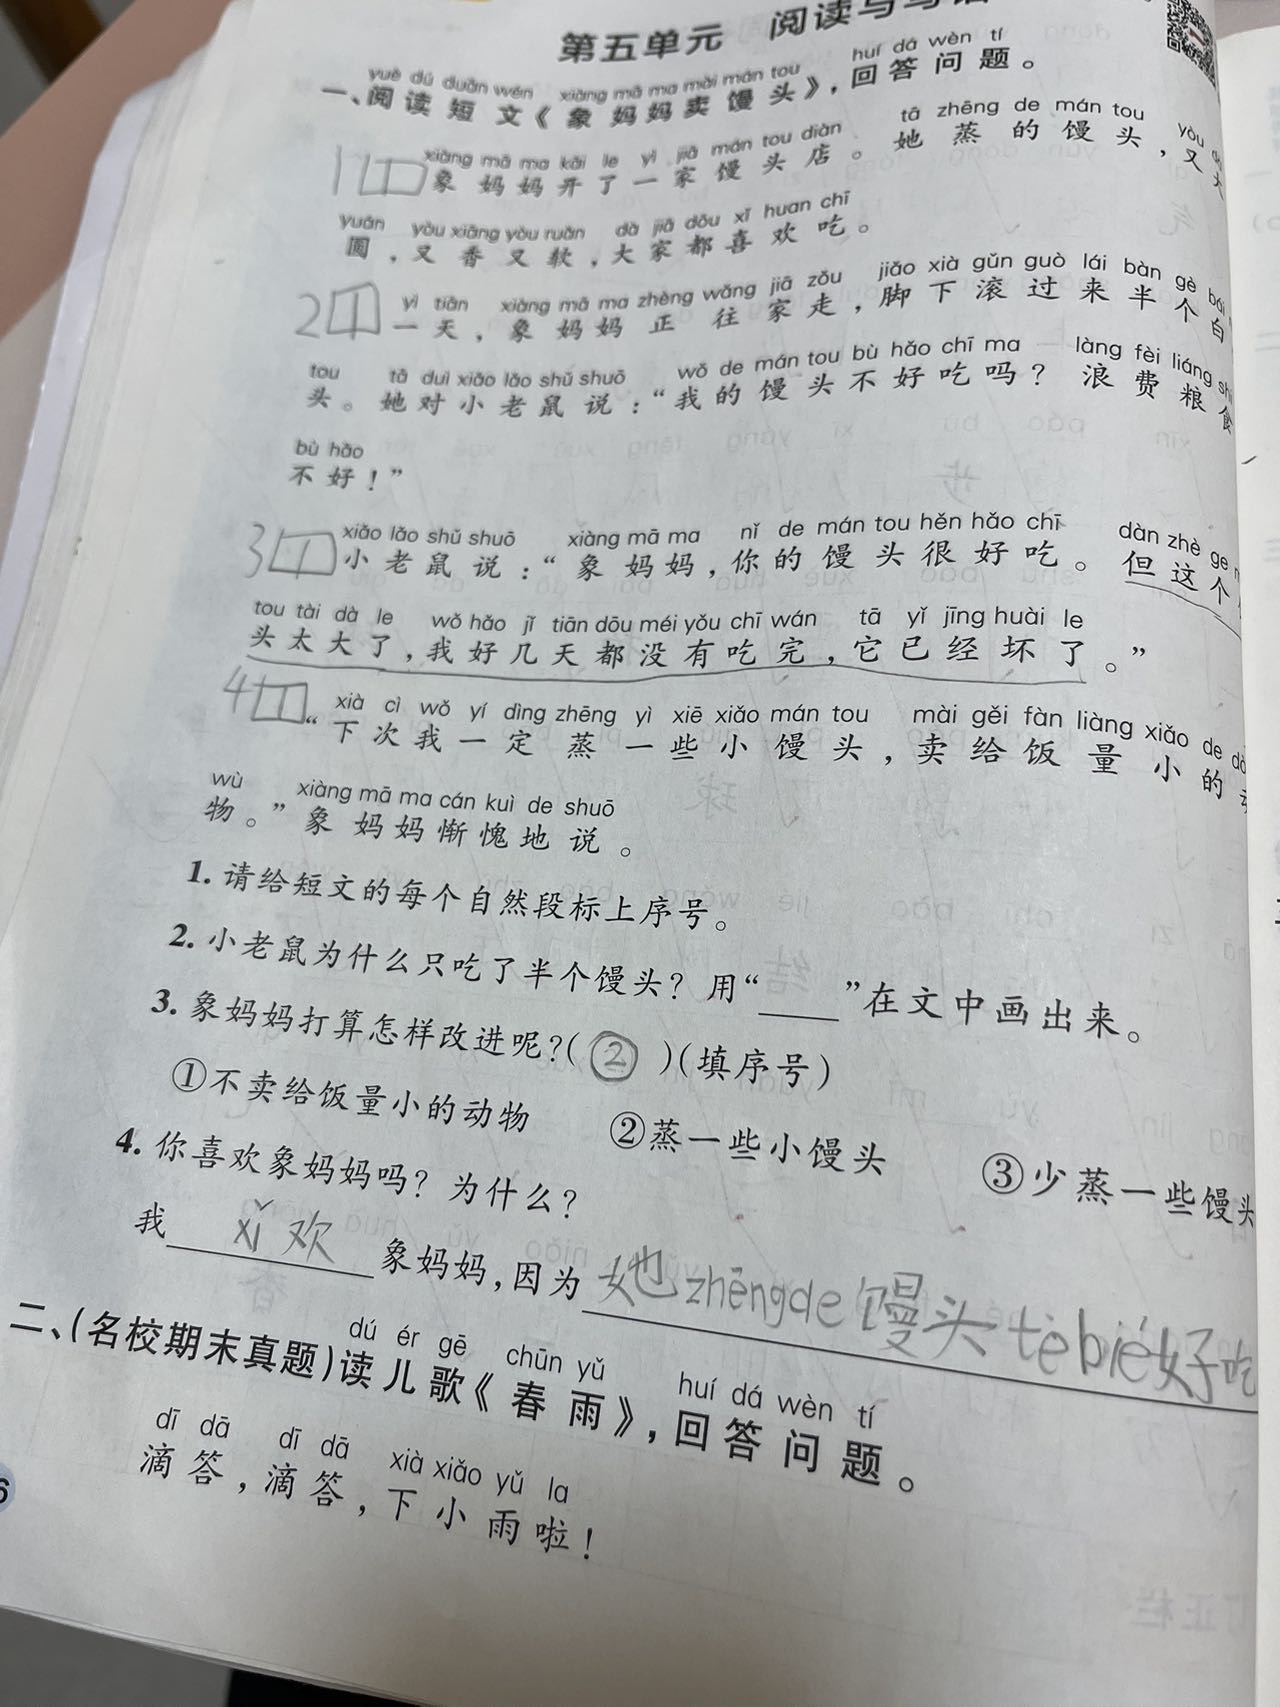 第五单元 阅读与写话
yuè dú duǎn wén xiàng mā ma mài mán tou huí dá wèn tí
一、阅读短文《象妈妈卖馒头》,回答问题。
xiàng mā ma kāi le yì jiā mán tou diàn tā zhēng de mán tou yòu
1 象妈妈开了一家馒头店。她蒸的馒头,又大
yuán yòu xiāng yòu ruǎn dà jiā dōu xǐ huan chī
圆,又香又软,大家都喜欢吃。
yì tiān xiàng mā ma zhèng wǎng jiā zǒu jiǎo xià gǔn guò lái bàn gè bái
2 一天,象妈妈正往家走,脚下滚过来半个白
tou tā duì xiǎo lǎo shǔ shuō wǒ de mán tou bù hǎo chī ma làng fèi liáng shi
头。她对小老鼠说:“我的馒头不好吃吗?浪费粮食
bù hǎo
不好!”
xiǎo lǎo shǔ shuō xiàng mā ma nǐ de mán tou hěn hǎo chī dàn zhè ge
3 小老鼠说:“象妈妈,你的馒头很好吃。但这个
tou tài dà le wǒ hǎo jǐ tiān dōu méi yǒu chī wán tā yǐ jīng huài le
头太大了,我好几天都没有吃完,它已经坏了。”
xià cì wǒ yí dìng zhēng yì xiē xiǎo mán tou mài gěi fàn liàng xiǎo de
4 “下次我一定蒸一些小馒头,卖给饭量小的
wù xiàng mā ma cán kuì de shuō
物。”象妈妈惭愧地说。
1. 请给短文的每个自然段标上序号。
2. 小老鼠为什么只吃了半个馒头?用“____”在文中画出来。
3. 象妈妈打算怎样改进呢?(②)(填序号)
①不卖给饭量小的动物 ②蒸一些小馒头 ③少蒸一些馒头
4. 你喜欢象妈妈吗?为什么?
我 xǐ欢 象妈妈,因为 她zhēngde馒头tèbié好吃
dú ér gē chūn yǔ huí dá wèn tí
二、(名校期末真题)读儿歌《春雨》,回答问题。
dī dā dī dā xià xiǎo yǔ la
滴答,滴答,下小雨啦!
6